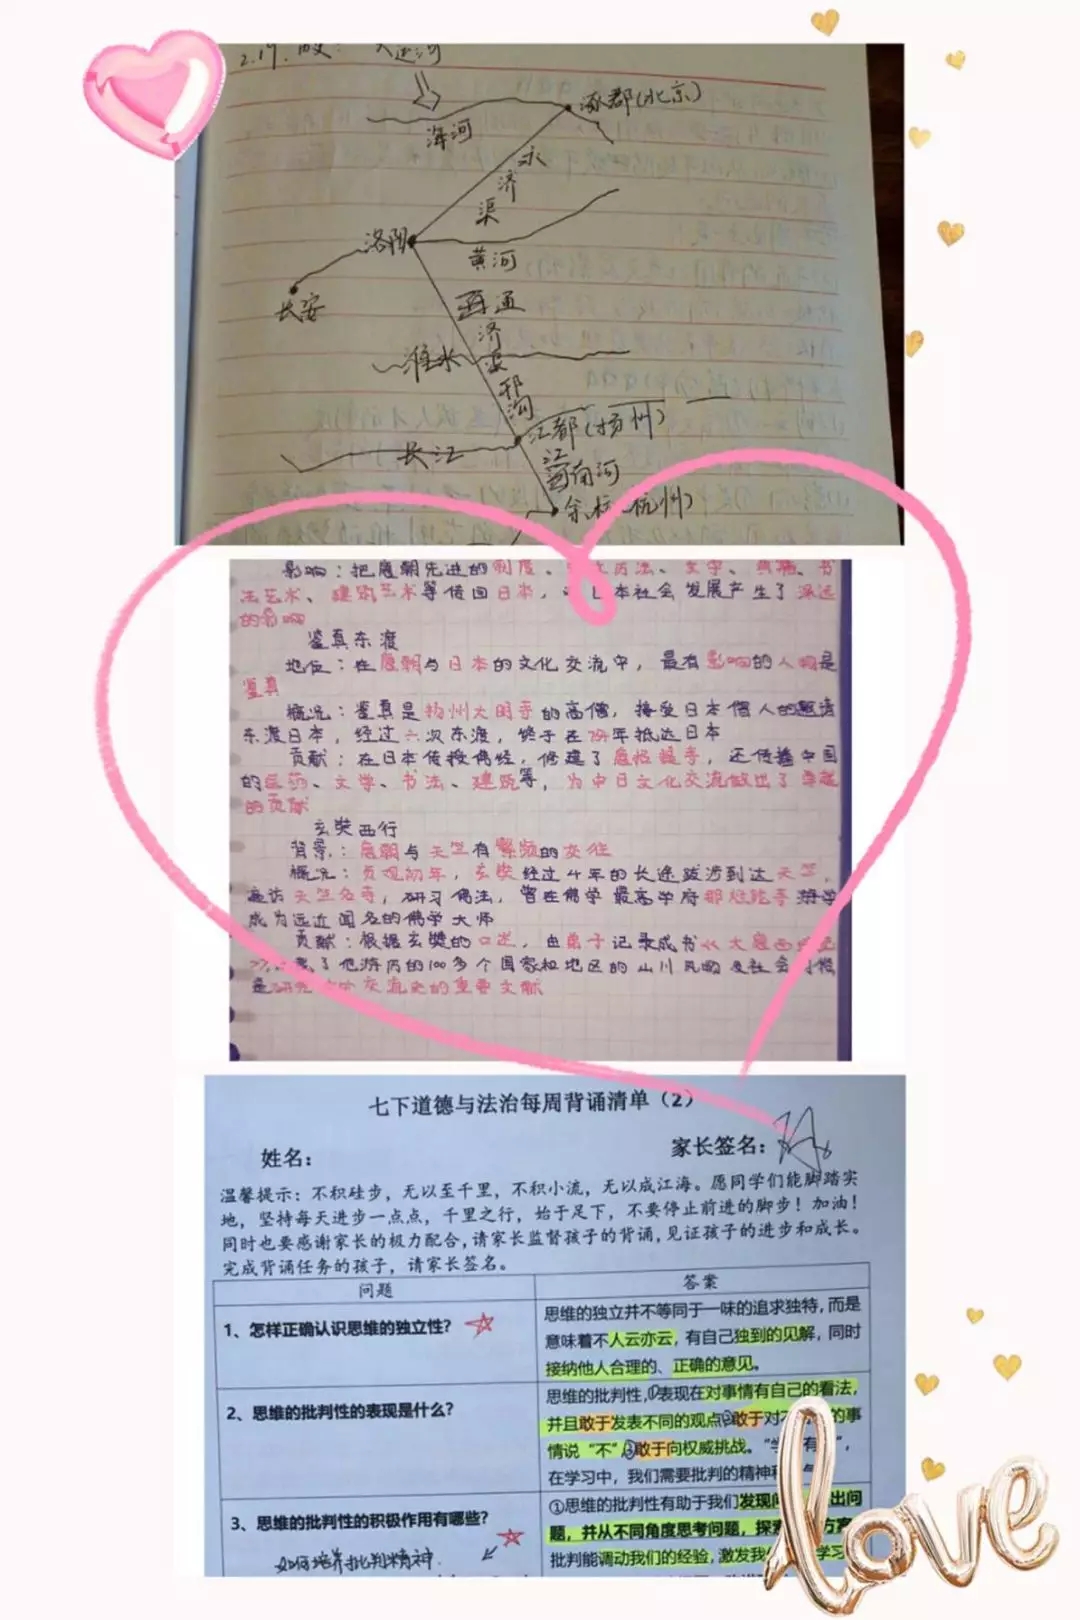 2.19.
大运河
涿郡(北京)
海河
永
济
渠
洛阳
黄河
长安
通
济
渠
淮水
邗
沟
江都(扬州)
长江
江
南河
余杭(杭州)
影响：把唐朝先进的制度、历法、文字、典籍、书
法艺术、建筑艺术等传回日本，本社会发展产生了深远
的影响
鉴真东渡
地位：在唐朝与日本的文化交流中，最有影响的人物是
鉴真
概况：鉴真是扬州大明寺的高僧，接受日本僧人的邀请
东渡日本，经过六次东渡，终于在754年抵达日本
贡献：在日本传授佛经，修建了唐招提寺，还传播中国
的医药、文学、书法、建筑等，为中日文化交流做出了卓越
的贡献
玄奘西行
背景：唐朝与天竺有繁频的交往
概况：贞观初年，玄奘经过4年的长途跋涉到达天竺，
遍访天竺名寺，研习佛法，曾在佛学最高学府那烂陀寺游学
成为远近闻名的佛学大师
贡献：根据玄奘的口述，由弟子记录成书《大唐西
了他游历的100多个国家和地区的山川风物及社会习俗
是研究中外交流史的重要文献
七下道德与法治每周背诵清单（2）
姓名：
家长签名：
温馨提示：不积硅步，无以至千里，不积小流，无以成江海。愿同学们能脚踏实
地，坚持每天进步一点点，千里之行，始于足下，不要停止前进的脚步！加油！
同时也要感谢家长的极力配合,请家长监督孩子的背诵,见证孩子的进步和成长。
完成背诵任务的孩子，请家长签名。
问题
答案
1、怎样正确认识思维的独立性?
思维的独立并不等同于一味的追求独特,而是
意味着不人云亦云，有自己独到的见解，同时
接纳他人合理的、正确的意见。
2、思维的批判性的表现是什么?
思维的批判性,①表现在对事情有自己的看法，
并且敢于发表不同的观点②敢于对不的事
情说“不”③敢于向权威挑战。“学有”，
在学习中，我们需要批判的精神和气
3、思维的批判性的积极作用有哪些?
如何培养批判精神.
①思维的批判性有助于我们发现问出问
题，并从不同角度思考问题，探方案
批判能调动我们的经验,激发我学习
love